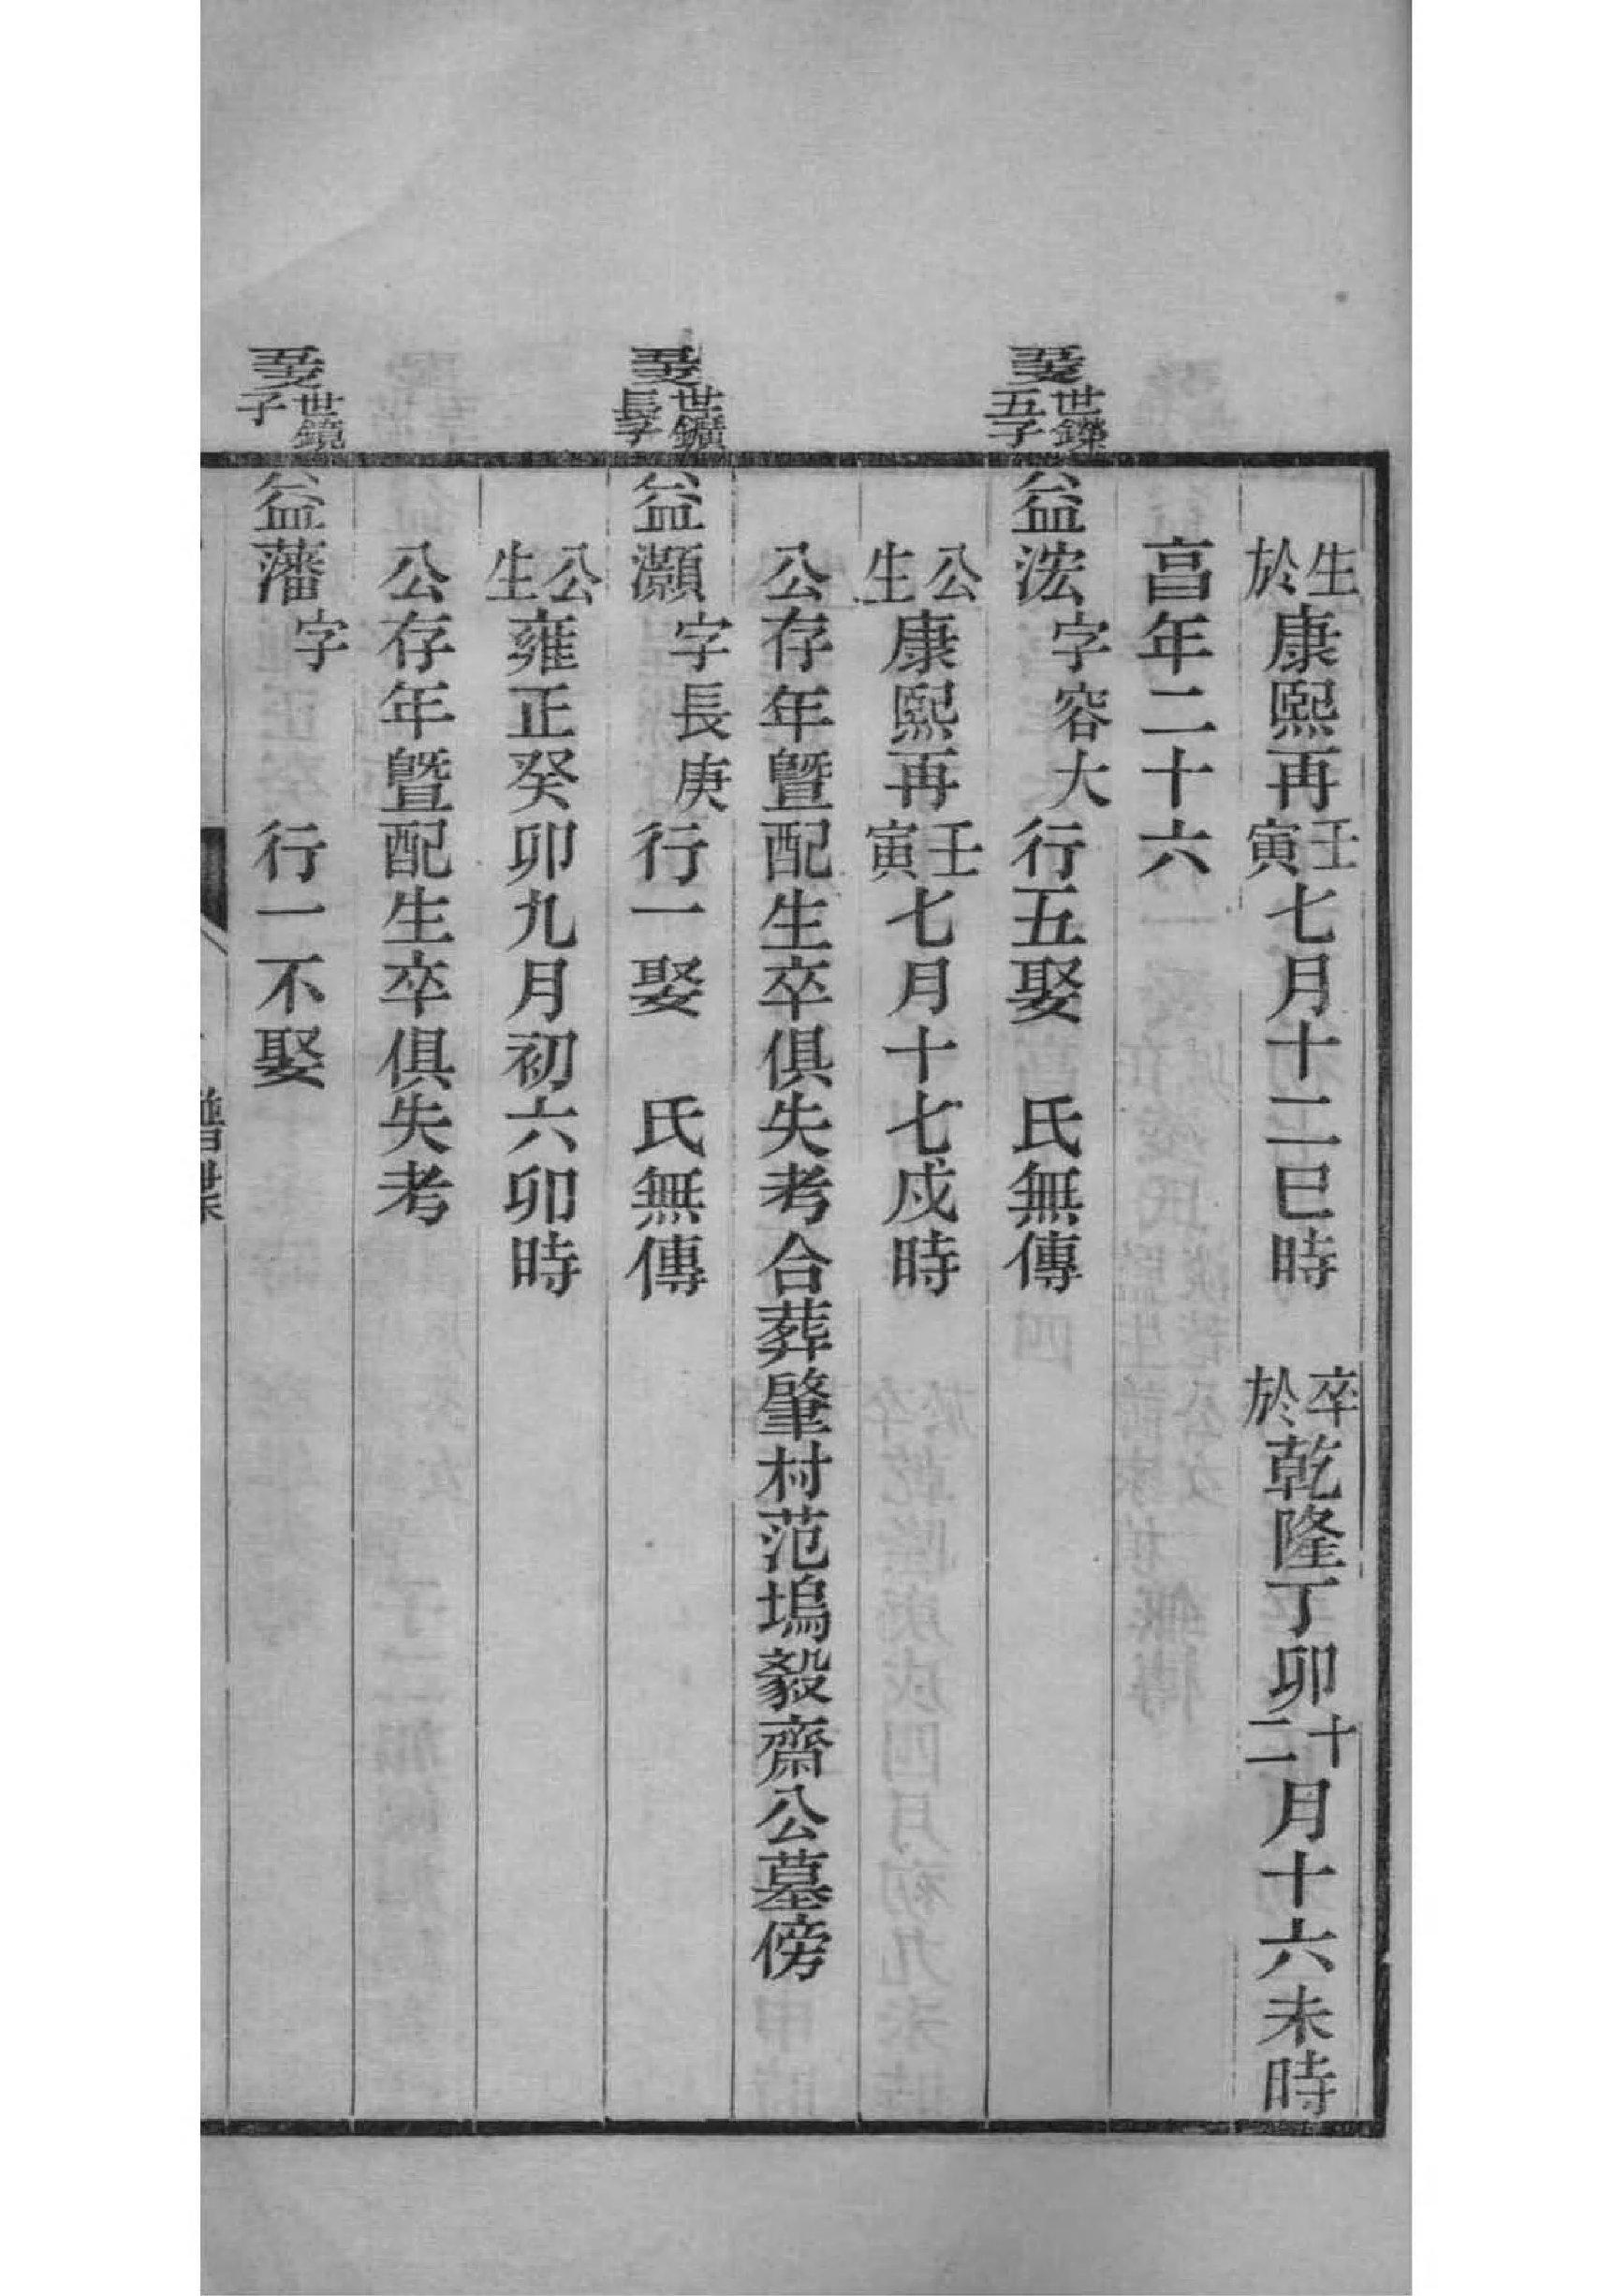 生於康熙再壬寅七月十二巳時　卒於乾隆丁卯十二月十六未時
亯年二十六
世五子
益浤字容大行五娶　氏無傳
公生康熙再壬寅七月十七戌時
公存年暨配生卒俱失考合葬肇村范塢毅齋公墓傍
世鑛長子
益灝字長庚行一娶　氏無傳
公生雍正癸卯九月初六卯時
公存年暨配生卒俱失考
世鏡子
益藩字　　行一不娶